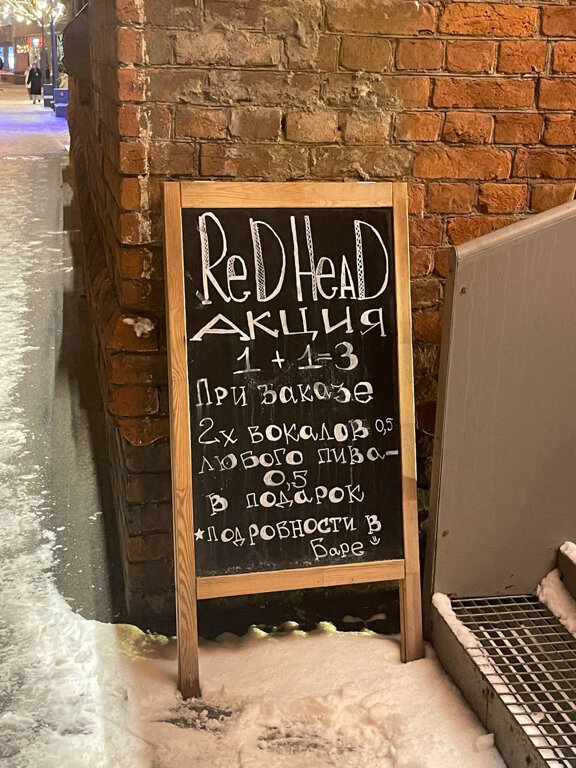 ReD HeaD
АКЦИЯ
1 + 1 = 3
При заказе
2х бокалов 0,5
любого пива -
0,5
в подарок
*подробности в
баре